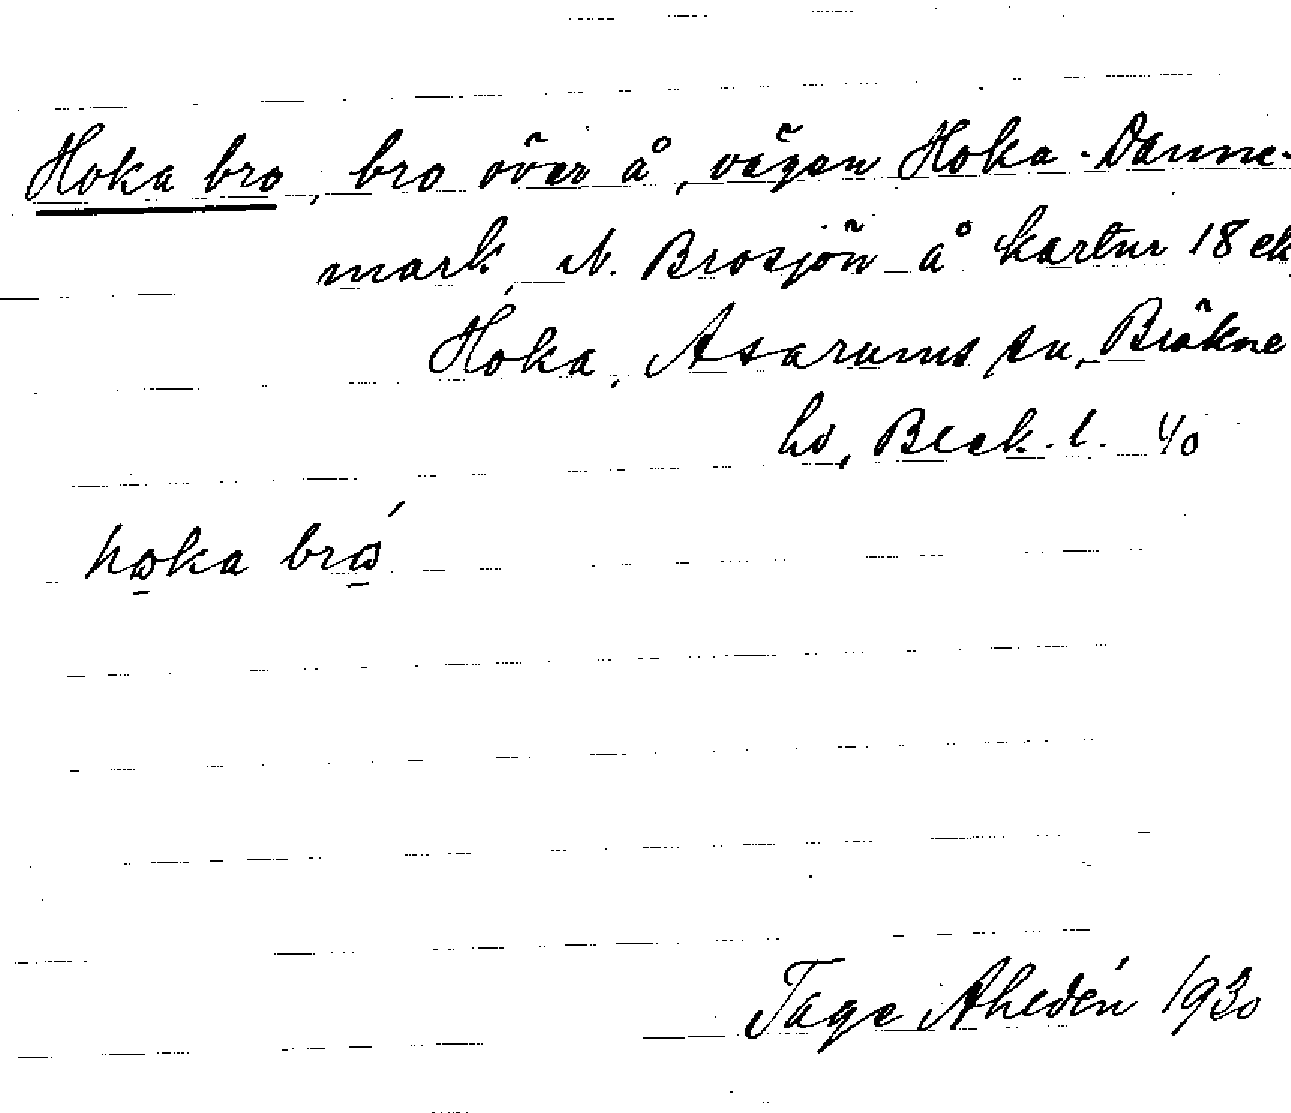 Hoka bro, bro över å, vägen Hoka-Danne-
mark, N. Brosjön å kartur 18 ek
Hoka, Asarums sn, Bräkne
hd, Blek. l. 4/0
hoka bro
Tage Ahldén 1930